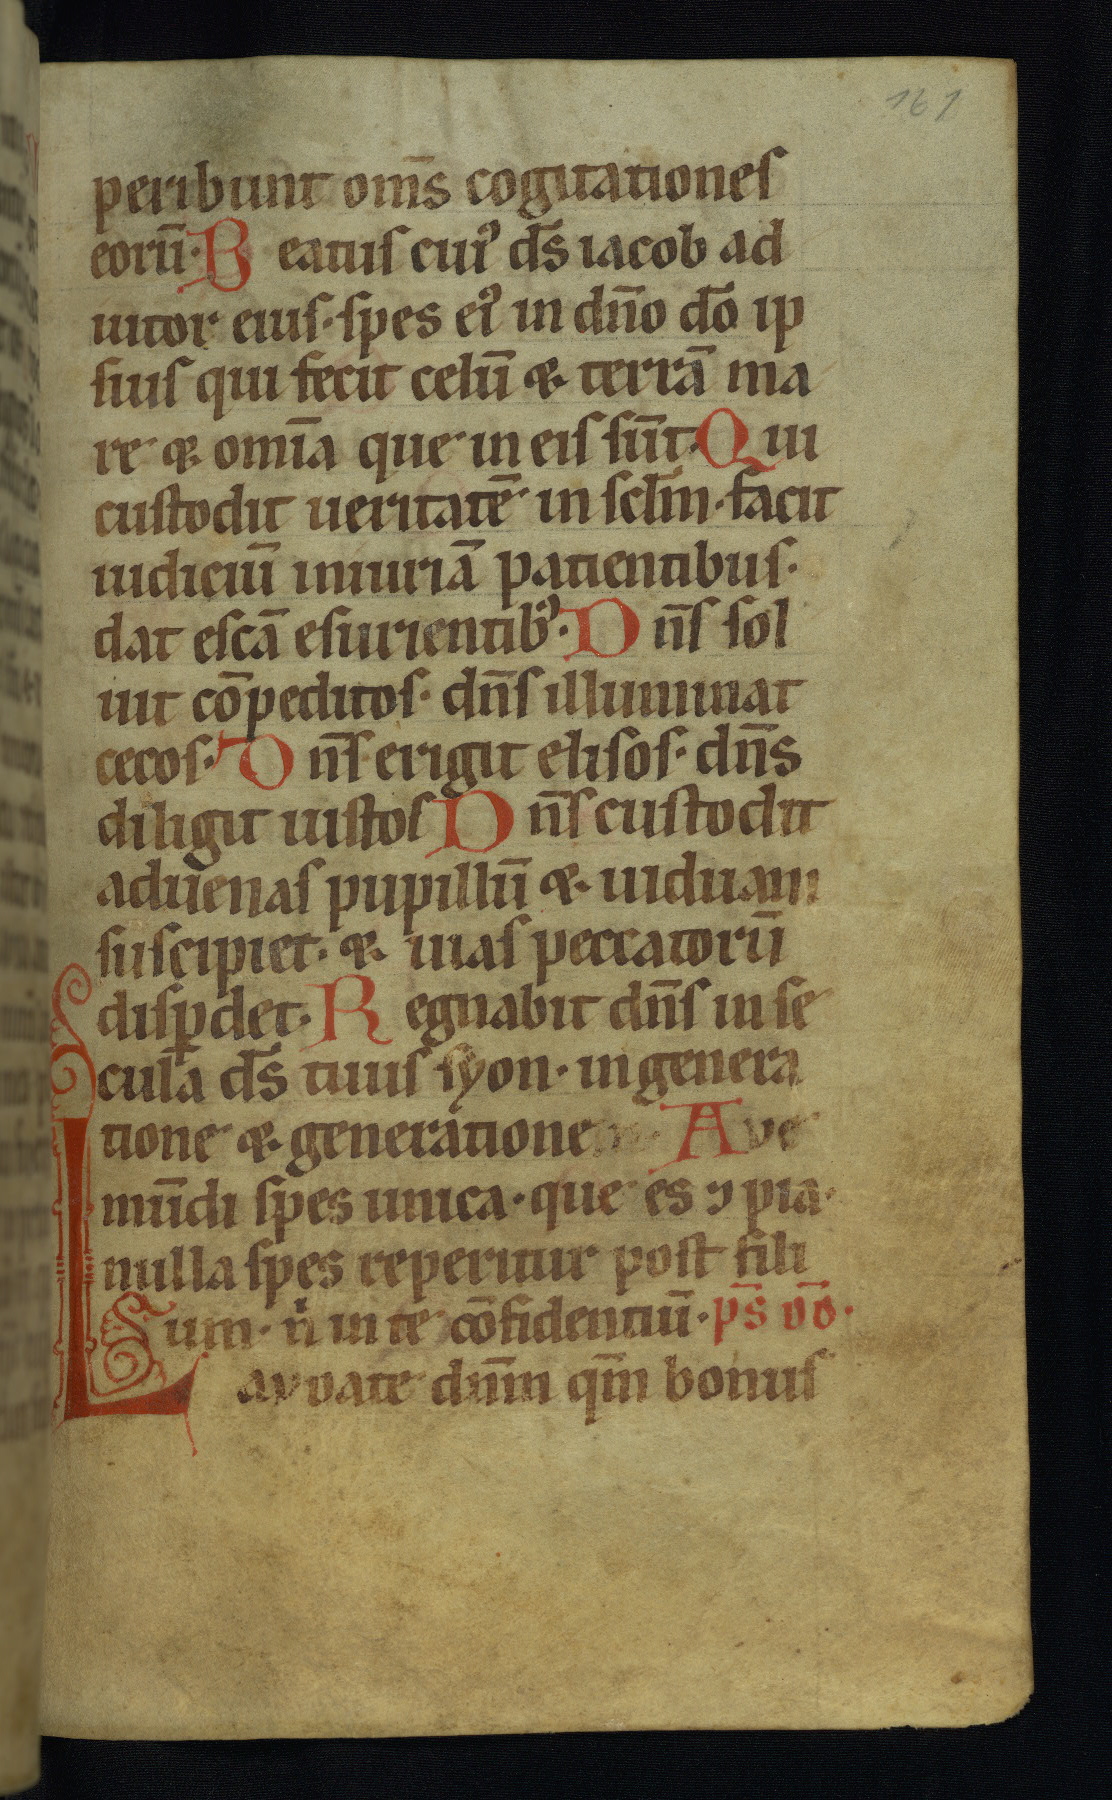 161
peribunt om̄s cogitationes
eorū· Beatus cuiꝰ d̄s iacob ad
iutor eius· spes eiꝰ in dn̄o dō ip
sius qui fecit celū & terrā ma
re & omīa que in eis sūt· Qui
custodit ueritatē in sclm̄· facit
iudiciū iniuriā patientibus·
dat escā esurientibꝰ· Dn̄s sol
uit cōpeditos· dn̄s illuminat
cecos· Dn̄s erigit elisos· dn̄s
diligit iustos Dn̄s custodit
aduenas pupillū & uiduam
suscipiet· & uias peccatorū
disꝑdet· Regnabit dn̄s in se
cula d̄s tuus syon· in genera
tione & generatione Ave
mūdi spes unica· que es ꝯ pia·
nulla spes reperitur post fili
um· n̄ in te cōfidentiū· p̄s dd̄·
Lavdate dn̄m qm̄ bonus